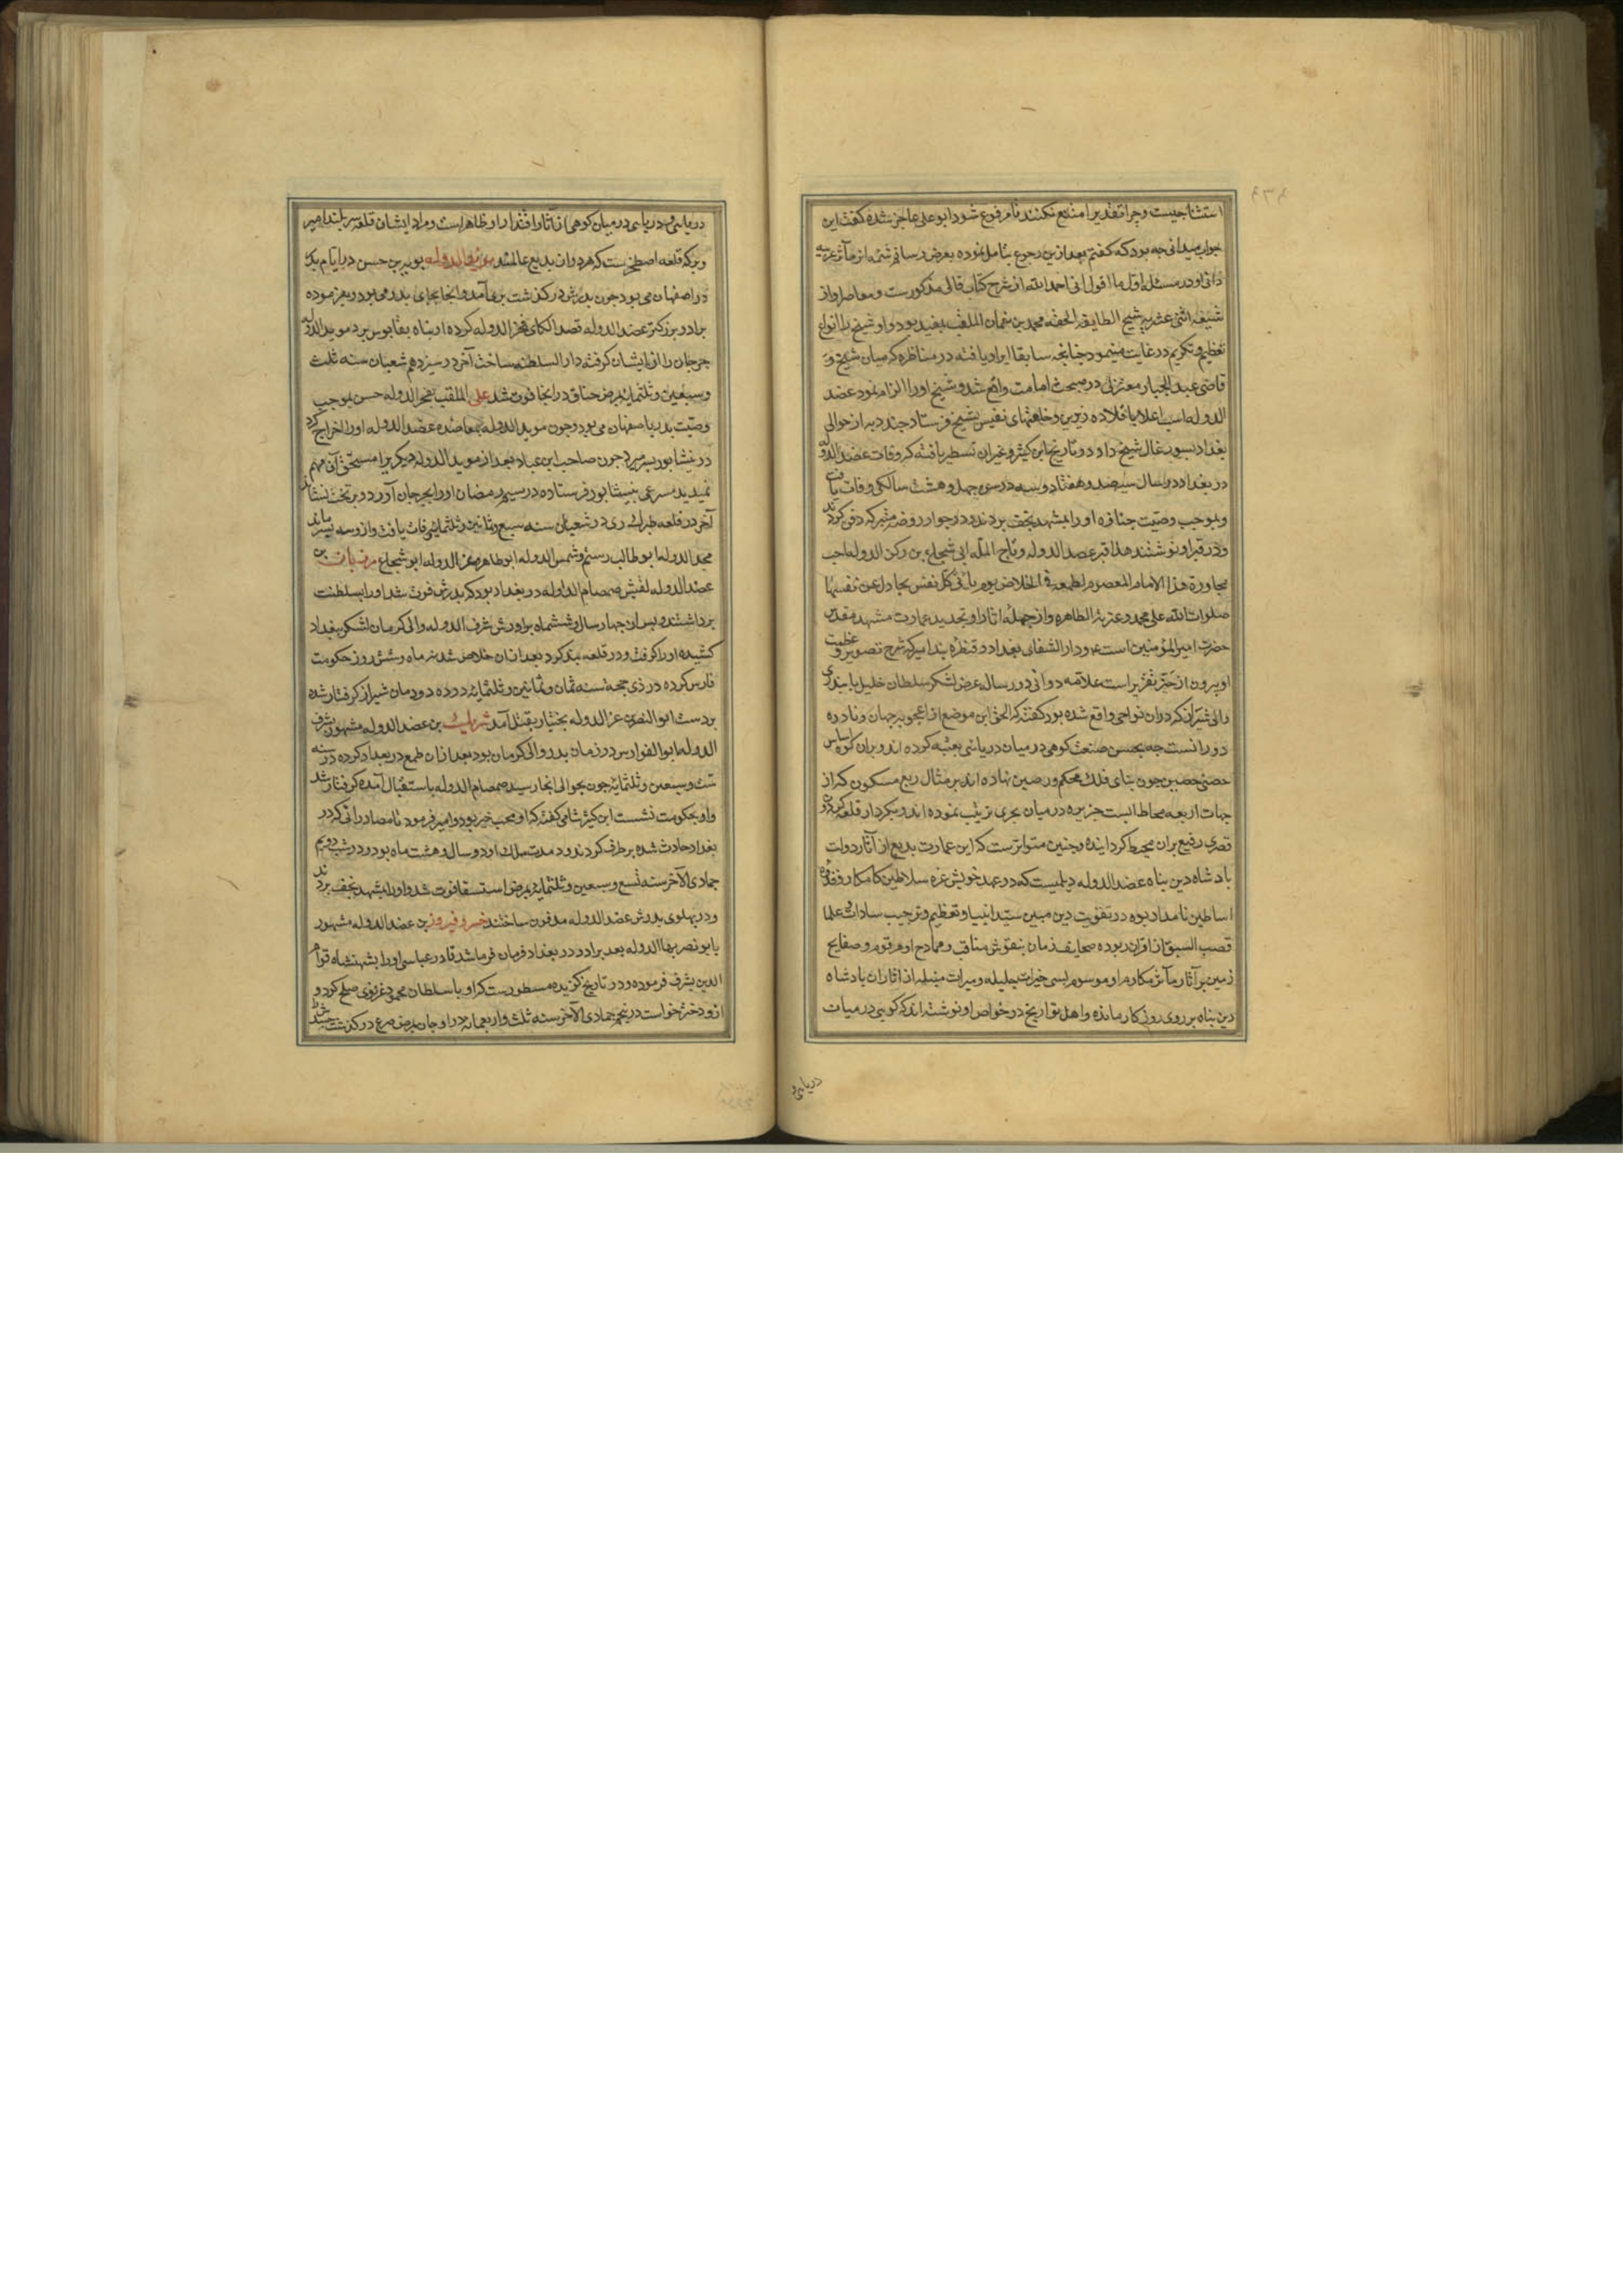 استثنا چیست و چرا تقدیر امتنع نکنند تا مرفوع شود ابو علی عاجز شده گفت این
جواب میدانی چه بود که گفتم بعد ازین رجوع بتامل نموده بعرض رسانم شمه از مآثر
ذاتی او در مسئله اول ما اقول انی احمد الله از شرح کتاب قالی مذکورست و معاصر او از
شیعه اثنی عشریه شیخ الطایفه الحقه محمد بن نعمان الملقب بمفید بود و او شیخ را انواع
تعظیم و تکریم در غایت مینمود چنانچه سابقا ایراد یافته در مناظره که میان شیخ و
قاضی عبد الجبار معتزلی در مبحث امامت واقع شد و شیخ او را الزام نمود عضد
الدوله اسب اعلا با قلاده زرین و خلعتهای نفیس بشیخ فرستاد و چند دیه از حوالی
بغداد بسیورغال شیخ داد و در تاریخ ابن کثیر و غیر آن تسطیر یافته که وفات عضد الدوله
در بغداد در سال سیصد و هفتاد و سه در سن چهل و هشت سالگی وفات یافت
و بموجب وصیت جنازه او را بمشهد نجف بردند و در جوار روضه متبرکه دفن کردند
و در قبر او نوشتند هذا قبر عضد الدوله و تاج المله ابی شجاع بن رکن الدوله احب
مجاورة هذا الامام المعصوم لطمعه فی الخلاص یوم یاتی کل نفس تجادل عن نفسها
صلوات الله علی محمد و عترته الطاهره و از جمله آثار او تجدید عمارت مشهد مقدس
حضرت امیر المؤمنین است و دار الشفای بغداد و قنطره بند امیر که شرح تصویر و عظمت
او بیرون از حیز تقریر است علامه دوانی در رساله عرض لشکر سلطان خلیل بایندری
والی شیراز که در آن نواحی واقع شده بود گفته که الحق این موضع از اعجوبه جهان و نادره
دورانست چه بحسن صنعت کوهی در میان دریائی تعبیه کرده اند و بر آن کوه اساس
حصنی حصین چون بنای فلک محکم و رصین نهاده اند بر مثال ربع مسکون که از
جهات اربعه محاط آبست جزیره در میان بحری ترتیب نموده اند و بکردار قلعه گردون
قصری رفیع بر آن محیط گردانیده و چنین متواترست که این عمارت بدیع از آثار دولت
پادشاه دین پناه عضد الدوله دیلمیست که در عهد خویش غره سلاطین کامکار و قدوه
اساطین نامدار بوده در تقویت دین مبین سید انبیا و تعظیم و ترحیب سادات و علما
قصب السبق از اقران ربوده صحایف زمان بنقوش مناقب و ممادح او مرقوم و صفایح
زمین بر آثار مآثر مکارم او موسوم بسی خیرات جلیله و مبرات منیله از آثار آن پادشاه
دین پناه بر روی روزگار مانده و اهل تواریخ در خواص او نوشته اند که کوهی در میان
دریای و
دریائی و دریائی در میان کوهی از آثار اقتدار او ظاهر است و مراد ایشان قلعه سر بند امیر
و برکه قلعه اصطخرست که هر دو از بدایع عالمند مؤید الدوله بویه بن حسن در ایام پدر
در اصفهان می بود چون پدرش درگذشت بری آمد و آنجا بجای پدر می بود و بفرموده
برادر بزرگتر عضد الدوله قصد الکای فخر الدوله کرده او پناه بقابوس برد موید الدوله
جرجان را از ایشان گرفته دار السلطنه ساخت آخر در سیزدهم شعبان سنه ثلث
و سبعین و ثلثمائه بمرض خناق در آنجا فوت شد علی الملقب بفخر الدوله حسن بموجب
وصیت پدر باصفهان می بود و چون موید الدوله بمعاضده عضد الدوله او را اخراج کرد
در نیشابور بسر میبرد چون صاحب ابن عباد بعد از موید الدوله دیگری را مستحق آن مهم
نمیدید مسرعی بنیشابور فرستاده در سیم رمضان او را بجرجان آورد و بر تخت نشاند
آخر در قلعه طبرک ری در شعبان سنه سبع و ثمانین و ثلثمائه وفات یافت و ازو سه پسر ماند
مجد الدوله ابو طالب رستم و شمس الدوله ابو طاهر و عز الدوله ابو شجاع مرزبان بن
عضد الدوله لقبش صمصام الدوله در بغداد بود که پدرش فوت شد او را بسلطنت
برداشتند و پس از چهار سال و ششماه برادرش شرف الدوله والی کرمان لشکر ببغداد
کشیده او را گرفت و در قلعه بند کرد بعد از آن خلاص شد نه ماه و شش روز حکومت
فارس کرده در ذی حجه سنه ثمان و ثمانین و ثلثمائه در ده دودمان شیراز گرفتار شده
بر دست ابو النصر بن عز الدوله بختیار بقتل آمد شیرزیل بن عضد الدوله مشهور بشرف
الدوله ابو الفوارس در زمان پدر والی کرمان بود بعد از آن طمع در بغداد کرده در سنه
ست و سبعین و ثلثمائه چون بحوالی آنجا رسید صمصام الدوله باستقبال آمده گرفتار شد
و او بحکومت نشست ابن کثیر شامی گفته که او محب خیر بود و امر فرمود تا مصادراتی که در
بغداد حادث شده بر طرف کردند و مدت ملک او دو سال و هشت ماه بود و در شب دویم
جمادی الآخر سنه تسع و سبعین و ثلثمائه بمرض استسقا فوت شد و او را بمشهد نجف بردند
و در پهلوی پدرش عضد الدوله مدفون ساختند خسرو فیروز بن عضد الدوله مشهور
بابو نصر بهاالدوله بعد برادر در بغداد فرمان فرما شد قادر عباسی او را بشهنشاه قوام
الدین مشرف فرموده و در تاریخ گزیده مسطورست که او با سلطان محمود غزنوی صلح کرد و
ازو دختر خواست در پنجم جمادی الآخر سنه ثلث و اربعمائه در ارجان بمرض صرع درگذشت